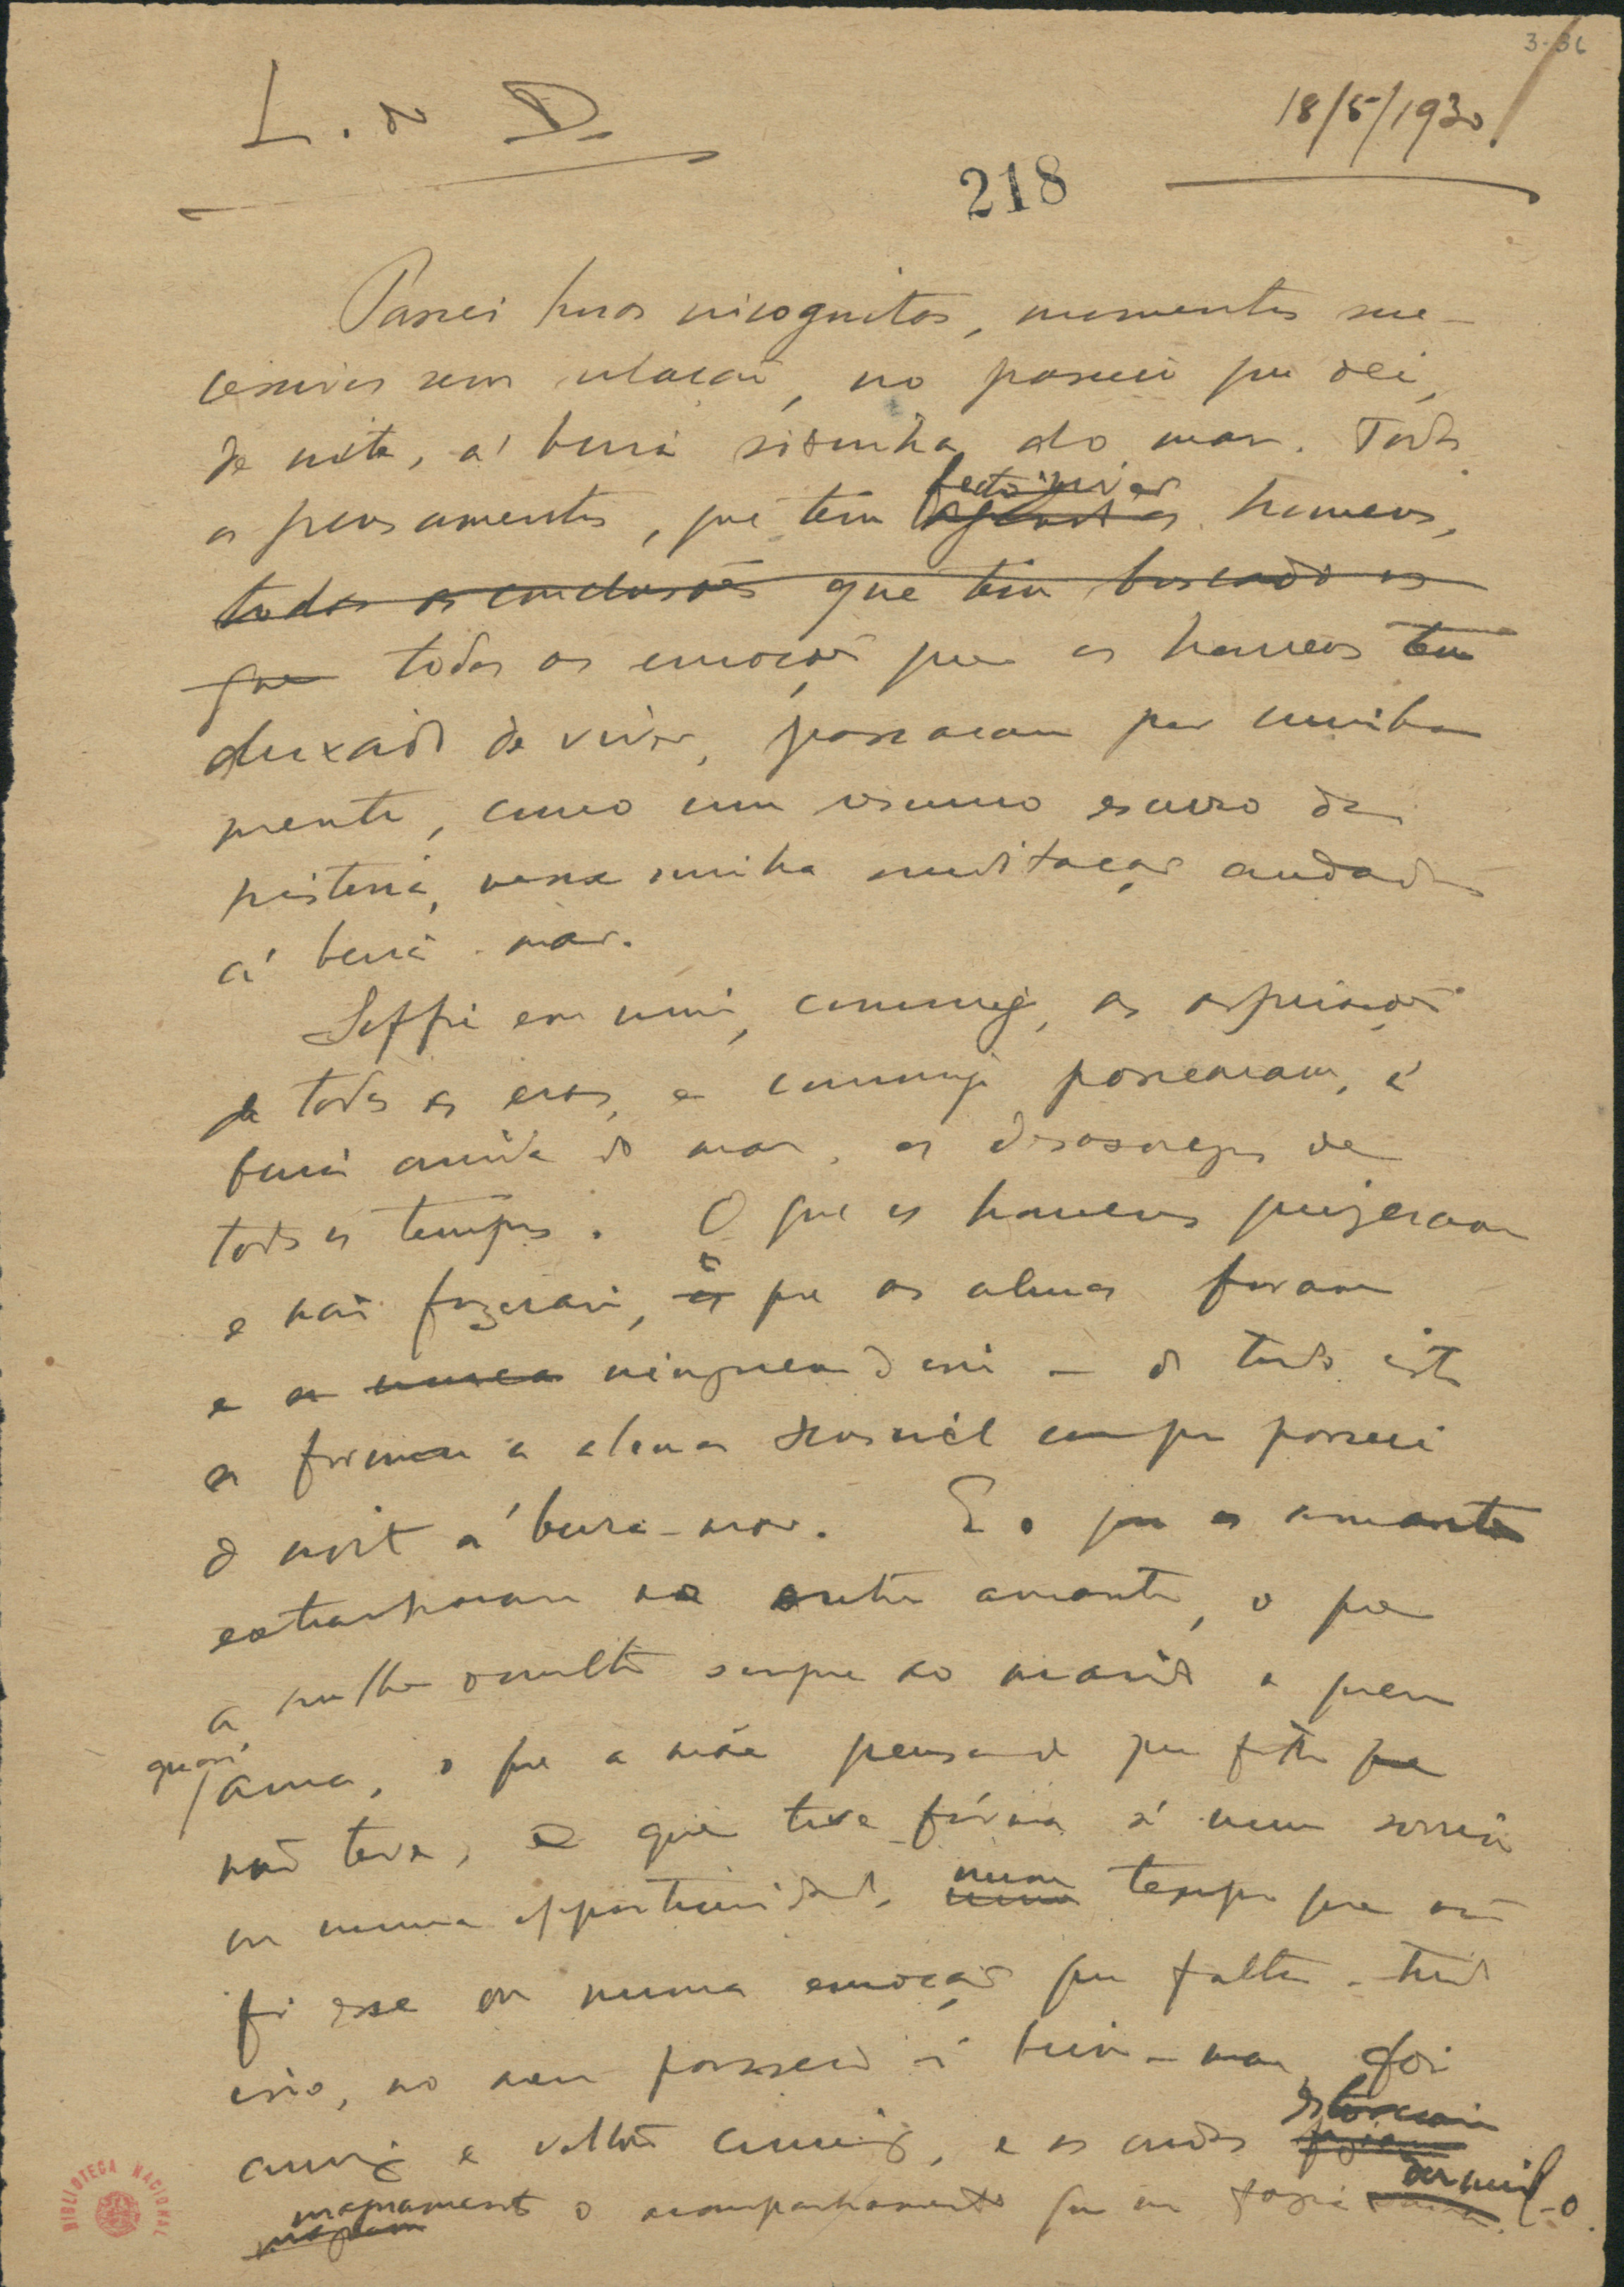 3-36
L. do D.
18/5/1930
218
Passei horas incognitas, momentos suc-
cessivos sem relação, no passeio que dei,
de noite, á beira sòsinha do mar. Todos
os pensamentos, que teem feito viver homens,
todas as conclusões que teem buscado os
que todas as emoções que os homens teem
deixado de viver, passaram por minha
mente, como um resumo escuro da
historia, nessa minha meditação andada
á beira-mar.
Soffri em mim, commigo, as aspirações
de todas as eras, e commigo passearam, á
beira ouvida do mar, os desasocegos de
todos os tempos. O que os homens quizeram
e não fizeram, o que as almas foram
e ninguem disse – de tudo isto
se formou a alma sensivel com que passeei
de noite á beira-mar. E o que os amantes
extranharam no outro amante, o que
a mulher occultou sempre ao marido a quem
quasi
ama, o que a mãe pensa do que filho que
não teve, o que teve fórma só num sorriso
ou numa opportunidade, num tempo que não
foi esse ou numa emoção que falta – tudo
isso, no meu passeio á beira-mar, foi
commigo e voltou commigo, e as ondas estorciam
magnamente o acompanhamento que me fazia dormil-o.
BIBLIOTECA NACIONAL